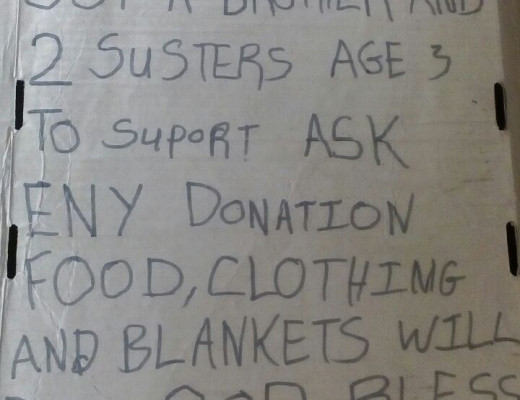 GOT A BROTHER AND
2 SUSTERS AGE 3
TO SUPORT ASK
ENY DONATION
FOOD, CLOTHING
AND BLANKETS WILL
GOD BLESS